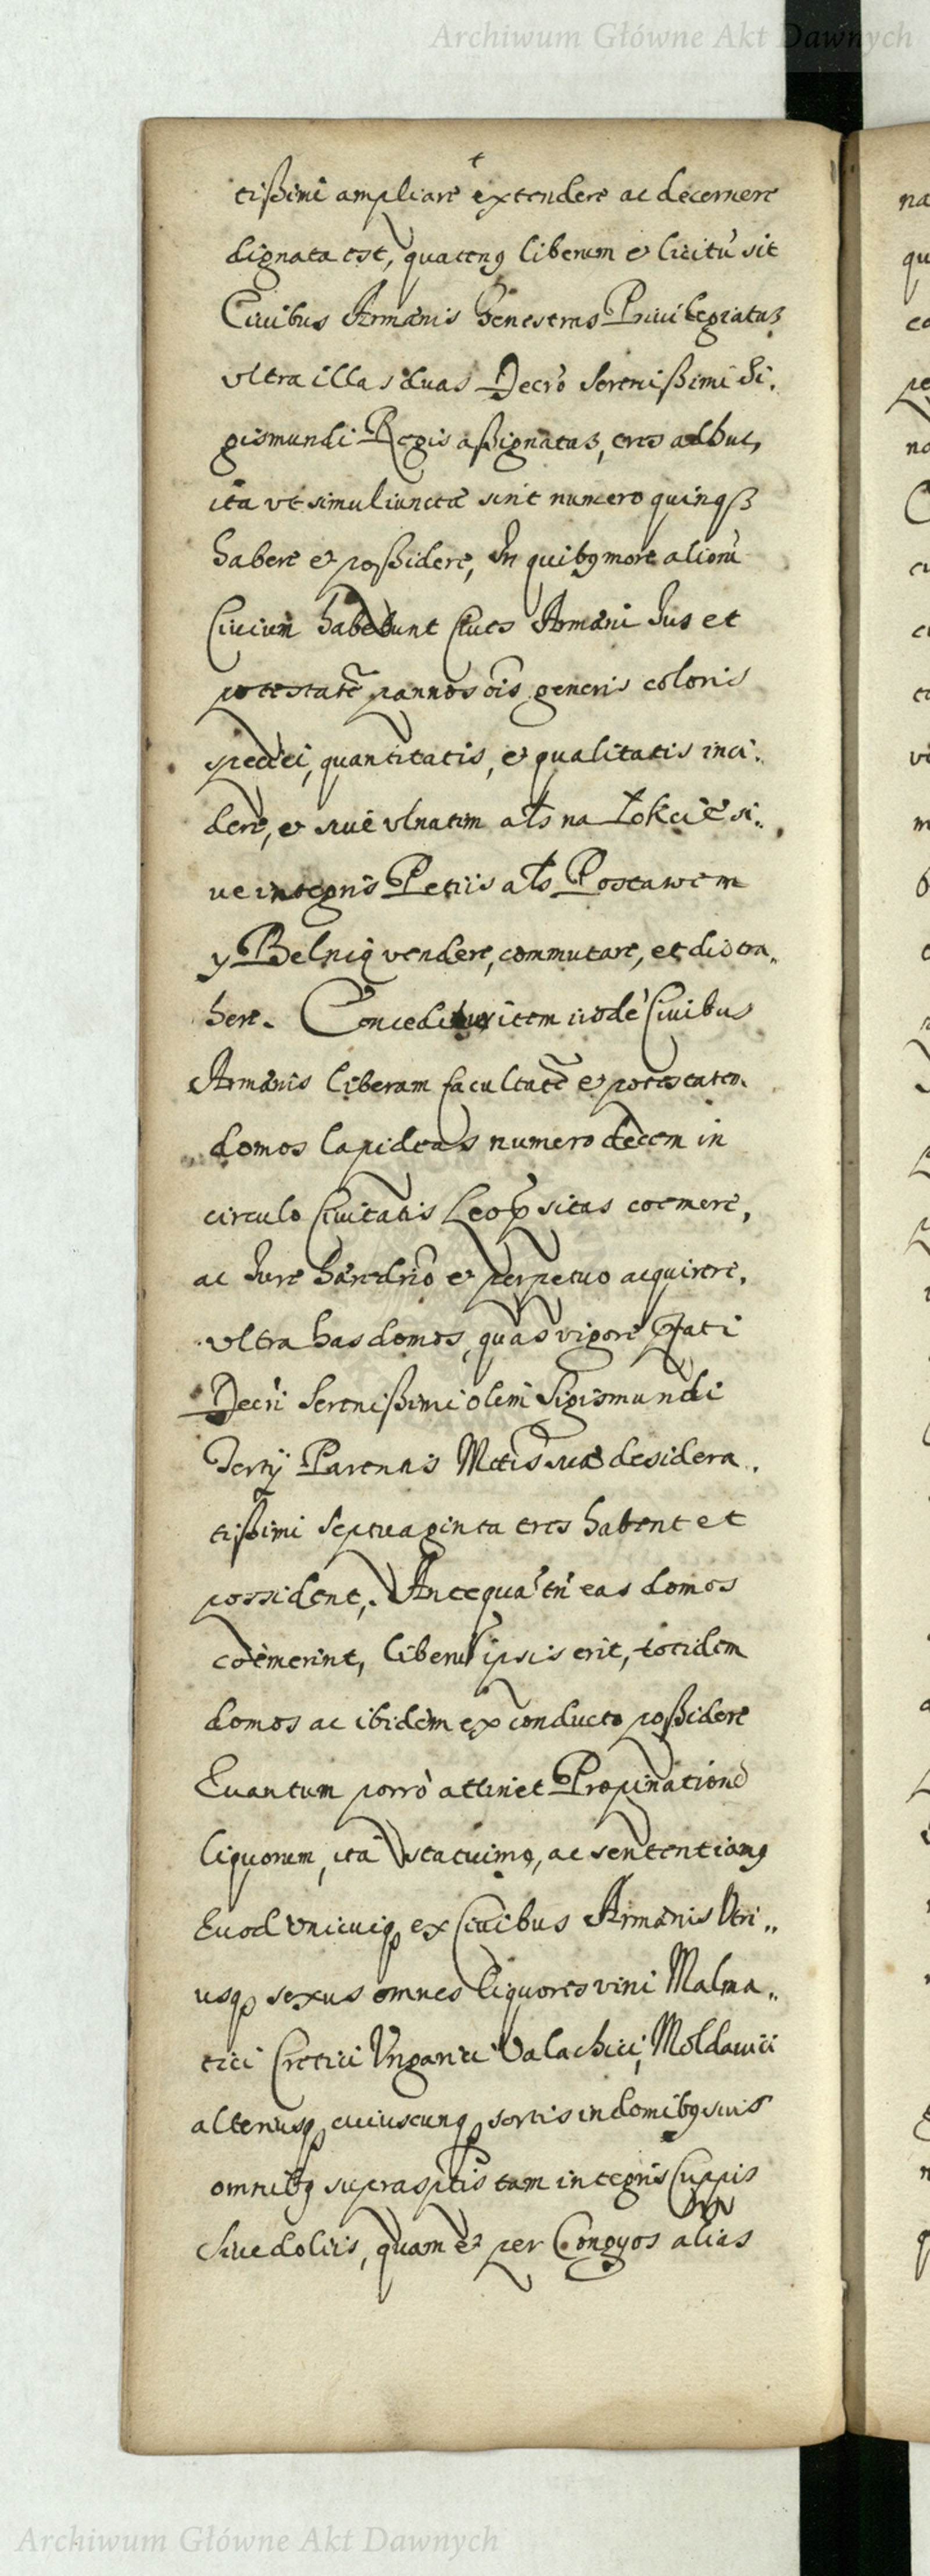 Archiwum Główne Akt Dawnych
tißimi ampliare et extendere ac decernere
dignata est, quatenq liberum et licitũ sit
Civibus Armænis Fenestras Privilegiatas
ultra illas duas Decrõ Serenißimi Si.
gismundi Regis aßignatas, tres adhuc,
ita ut simul iunctæ sint numero quinqȝ
habere et poßidere, In quibq more aliorũ
Civium habebunt Cives Armæni Jus et
potestatẽ pannos õis generis coloris
speciei, quantitatis, et qualitatis inci.
dere, et sive ulnatim als na Łokcie si.
ve integris Petiis als Postawem
y Belnią vendere, commutare, et distra„
here. Conceditur item iisdẽ Civibus
Armænis liberam facultatẽ et potestatem
domos lapideas numero decem in
circulo Civitatis Leop sitas coemere,
ac Jure hæredriõ et perpetuo acquirere,
ultra has domos, quas vigore Pfati
Decrĩ Serenißimi olim Sigismundi
Tertij Parentis Mctis suæ desidera.
tißimi septuaginta tres habent et
possident, Antequã tñ eas domos
coemerint, liberũ ipsis erit, totidem
domos ac ibidem ex conducto poßidere
Quantum porrò attinet Propinationẽ
liquorum, ita statuimq, ac sententiamq
Quod unicuiq ex Civibus Armænis Utri„
usq sexus omnes liquores vini Malma„
tici Cretici Ungarici Valachici, Moldavici
alteriusq cuiuscunq sortis in domibq suis
omnibq supraspctis tam integris Cuppis
Sive doliis, quam et per Congyos alias
Archiwum Główne Akt Dawnych